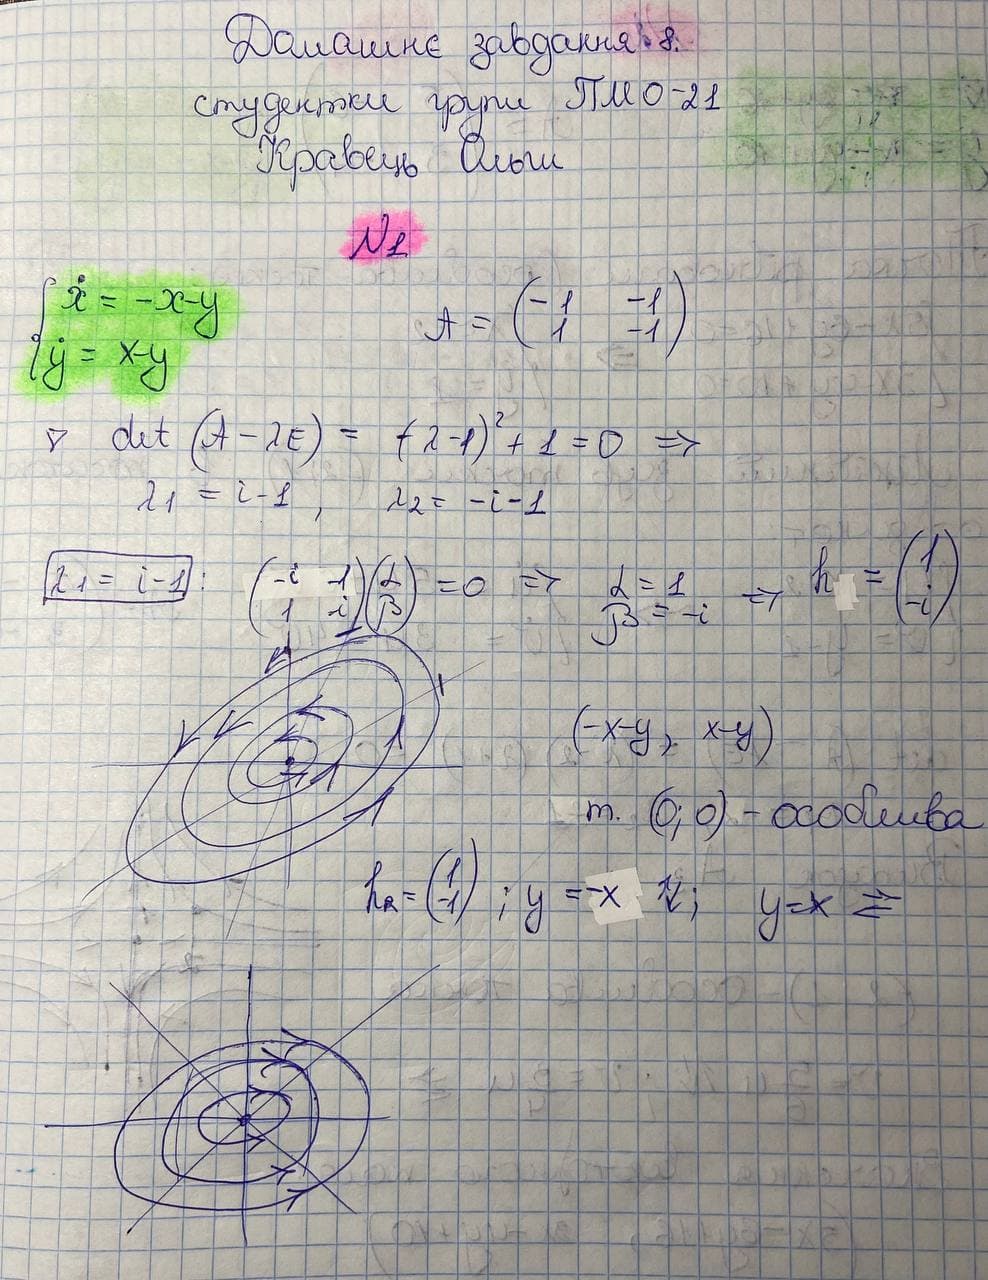 Домашнє завдання 8.
студентки групи ПМО-21
Кравець Ольги
№1
{ ẋ = -x-y
{ ẏ = x-y
A = (-1 -1
1 -1)
▽ det (A - λE) = (-λ-1)² + 1 = 0 =>
λ1 = i-1, λ2 = -i-1
λ1 = i-1 : (-i -1
1 -i) (α
β) = 0 => α = 1
β = -i => h = (1
-i)
(-x-y, x-y)
т. (0; 0) - особлива
h2 = (1
-1) ; y = -x ; y=x